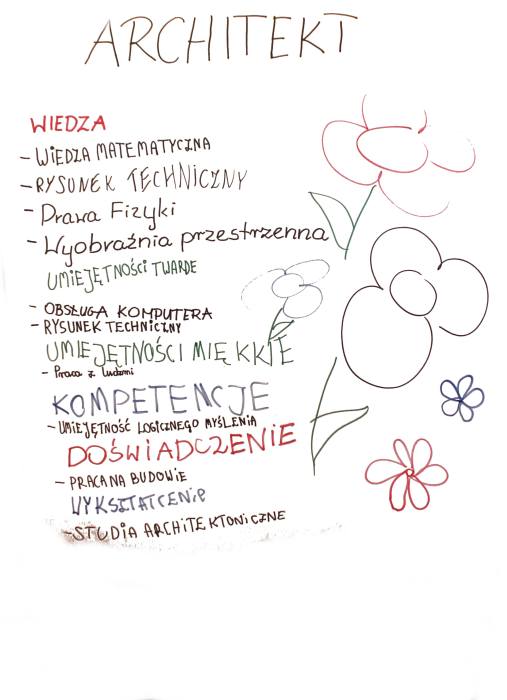 ARCHITEKT
WIEDZA
- WIEDZA MATEMATYCZNA
- RYSUNEK TECHNICZNY
- Prawa Fizyki
- Wyobraźnia przestrzenna
UMIEJĘTNOŚCI TWARDE
- OBSŁUGA KOMPUTERA
- RYSUNEK TECHNICZNY
UMIEJĘTNOŚCI MIĘKKIE
- Praca z ludźmi
KOMPETENCJE
- UMIEJĘTNOŚĆ LOGICZNEGO MYŚLENIA
DOŚWIADCZENIE
- PRACA NA BUDOWIE
WYKSZTAŁCENIE
- STUDIA ARCHITEKTONICZNE